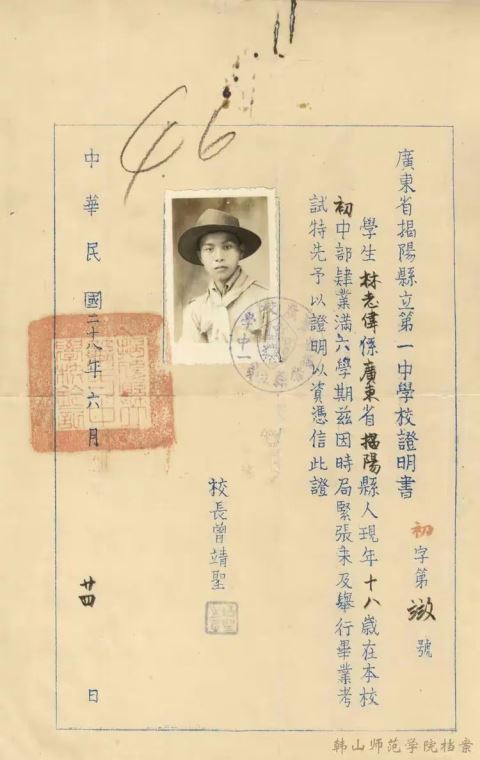 46
廣東省揭陽縣立第一中學校證明書
初字第 號
學生林志偉係廣東省揭陽縣人現年十八歲在本校
初中部肄業滿六學期茲因時局緊張未及舉行畢業考
試特先予以證明以資憑信此證
校長曾靖聖
中華民國二十八年六月廿四日
韩山师范学院档案